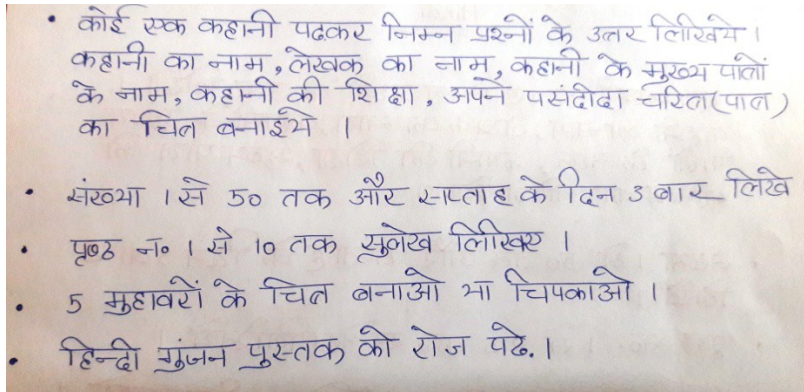 • कोई एक कहानी पढकर निम्न प्रश्नों के उत्तर लिखिये ।
कहानी का नाम, लेखक का नाम, कहानी के मुख्य पात्रों
के नाम, कहानी की शिक्षा, अपने पसंदीदा चरित्र(पात्र)
का चित्र बनाईये ।
• संख्या 1 से 50 तक और सप्ताह के दिन 3 बार लिखे
• पृष्ठ न० 1 से 10 तक सुलेख लिखिए ।
• 5 मुहावरों के चित्र बनाओ या चिपकाओ ।
• हिन्दी गुंजन पुस्तक को रोज पढे. ।